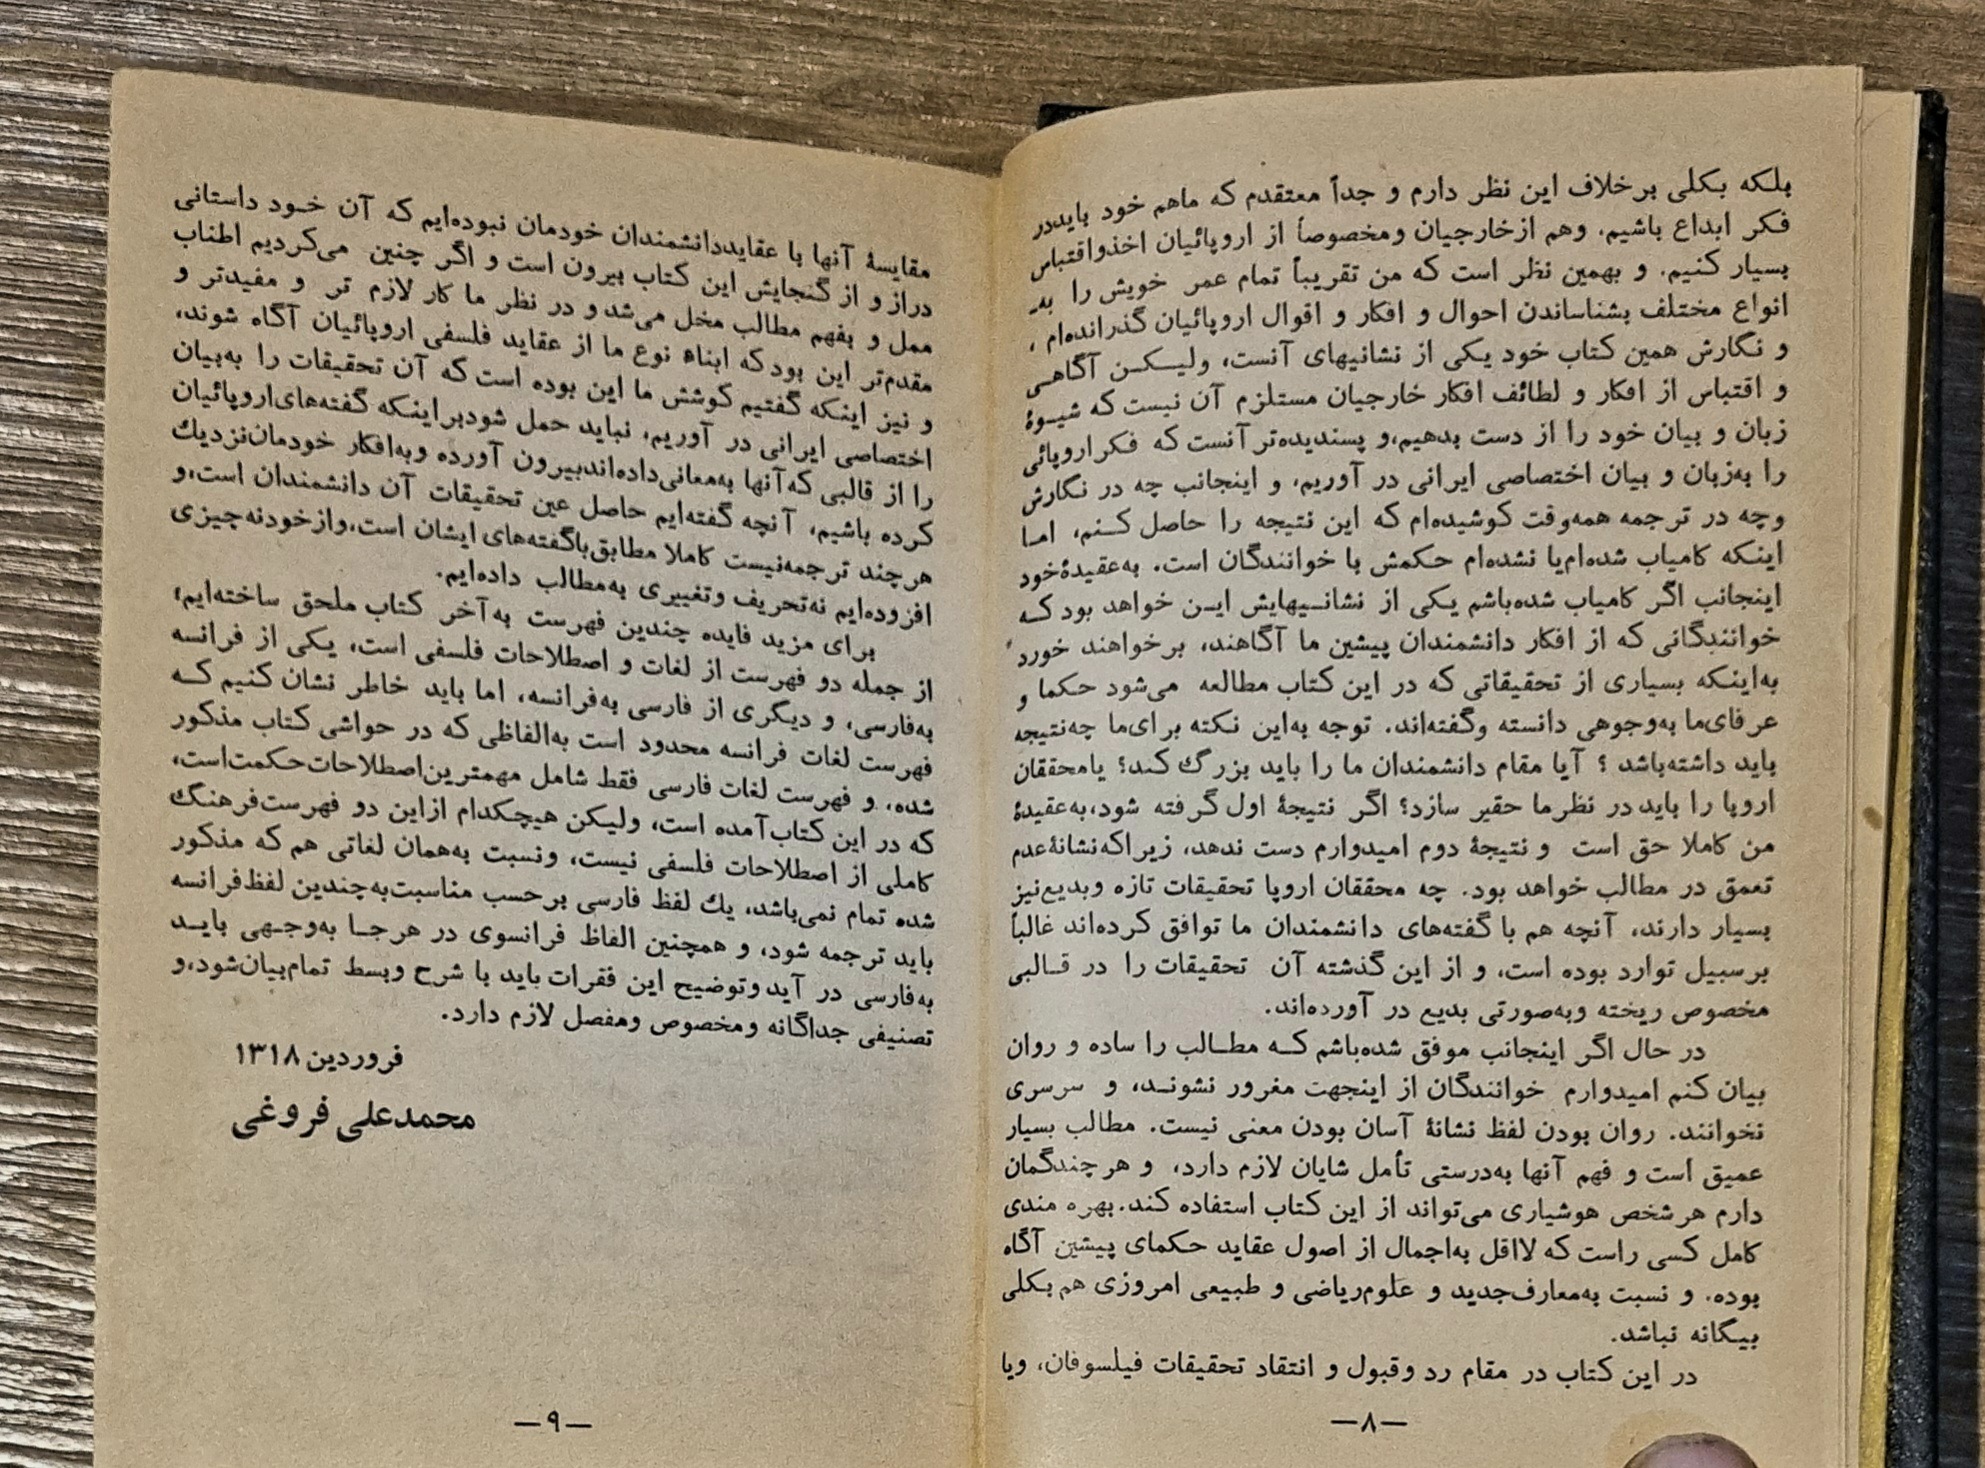 بلکه بکلی برخلاف این نظر دارم و جداً معتقدم که ماهم خود بایددر
فکر ابداع باشیم. وهم ازخارجیان ومخصوصاً از اروپائیان اخذواقتباس
بسیار کنیم. و بهمین نظر است که من تقریباً تمام عمر خویش را به‌ـ
انواع مختلف بشناساندن احوال و افکار و اقوال اروپائیان گذرانده‌ام ،
و نگارش همین کتاب خود یکی از نشانیهای آنست، ولیـکـن آگاهـی
و اقتباس از افکار و لطائف افکار خارجیان مستلزم آن نیست که شیـوهٔ
زبان و بیان خود را از دست بدهیم،و پسندیده‌تر آنست که فکر اروپائی
را به‌زبان و بیان اختصاصی ایرانی در آوریم. و اینجانب چه در نگارش
وچه در ترجمه همه‌وقت کوشیده‌ام که این نتیجه را حاصل کـنم، امـا
اینکه کامیاب شده‌ام‌یا نشده‌ام حکمش با خوانندگان است. به‌عقیدهٔ‌خود
اینجانب اگر کامیاب شده‌باشم یـکی از نشانـیهایش ایـن خواهد بود کـه
خوانندگانی که از افکار دانشمندان پیشین ما آگاهند، برخواهند خورد
به‌اینکه بسیاری از تحقیقاتی که در این کتاب مطالعه می‌شود حکما و
عرفای‌ما به‌وجوهی دانسته وگفته‌اند. توجه به‌این نکته برای‌ما چه‌نتیجه
باید داشته‌باشد ؟ آیا مقام دانشمندان ما را باید بزرگ کند؟ یامحققان
اروپا را باید در نظرما حقیر سازد؟ اگر نتیجهٔ اول گرفته شود،به‌عقیدهٔ
من کاملا حق است و نتیجهٔ دوم امیدوارم دست ندهد، زیراکه‌نشانهٔ‌عدم
تعمق در مطالب خواهد بود. چه محققان اروپا تحقیقات تازه وبدیع‌نیز
بسیار دارند، آنچه هم با گفته‌های دانشمندان ما توافق کرده‌اند غالباً
برسبیل توارد بوده است، و از این گذشته آن تحقیقات را در قـالبی
مخصوص ریخته وبه‌صورتی بدیع در آورده‌اند.
در حال اگر اینجانب موفق شده‌باشم کـه مطـالب را ساده و روان
بیان کنم امیدوارم خوانندگان از اینجهت مغرور نشونـد، و سرسری
نخوانند. روان بودن لفظ نشانهٔ آسان بودن معنی نیست. مطالب بسیار
عمیق است و فهم آنها به‌درستی تأمل شایان لازم دارد، و هرچندگمان
دارم هرشخص هوشیاری می‌تواند از این کتاب استفاده کند. بهره مندی
کامل کسی راست که لااقل به‌اجمال از اصول عقاید حکمای پیشین آگاه
بوده، و نسبت به‌معارف‌جدید و علوم‌ریاضی و طبیعی امروزی هم بکلی
بیگانه نباشد.
در این کتاب در مقام رد وقبول و انتقاد تحقیقات فیلسوفان، ویا
—۸—
مقایسهٔ آنها با عقایددانشمندان خودمان نبوده‌ایم که آن خـود داستانی
دراز و از گنجایش این کتاب بیرون است و اگر چنین می‌کردیم اطناب
ممل و بفهم مطالب مخل می‌شد و در نظر ما کار لازم تر و مفیدتر و
مقدم‌تر این بودکه ابناء نوع ما از عقاید فلسفی اروپائیان آگاه شوند،
و نیز اینکه گفتیم کوشش ما این بوده است که آن تحقیقات را به‌بیان
اختصاصی ایرانی در آوریم، نباید حمل شودبراینکه گفته‌های‌اروپائیان
را از قالبی که‌آنها به‌معانی‌داده‌اندبیرون آورده وبه‌افکار خودمان‌نزدیك
کرده باشیم، آنچه گفته‌ایم حاصل عین تحقیقات آن دانشمندان است،و
هرچند ترجمه‌نیست کاملا مطابق‌باگفته‌های ایشان است،وازخودنه‌چیزی
افزوده‌ایم نه‌تحریف وتغییری به‌مطالب داده‌ایم.
برای مزید فایده چندین فهرست به‌آخر کتاب ملحق ساخته‌ایم؛
از جمله دو فهرست از لغات و اصطلاحات فلسفی است، یکی از فرانسه
به‌فارسی، و دیگری از فارسی به‌فرانسه، اما باید خاطر نشان کنیم کـه
فهرست لغات فرانسه محدود است به‌الفاظی که در حواشی کتاب مذکور
شده، و فهرست لغات فارسی فقط شامل مهمترین‌اصطلاحات‌حکمت‌است،
که در این کتاب‌آمده است، ولیکن هیچکدام ازاین دو فهرست‌فرهنگ
کاملی از اصطلاحات فلسفی نیست، ونسبت به‌همان لغاتی هم که مذکور
شده تمام نمی‌باشد، یك لفظ فارسی برحسب مناسبت‌به‌چندین لفظ‌فرانسه
باید ترجمه شود، و همچنین الفاظ فرانسوی در هرجـا به‌وجـهی بایـد
به‌فارسی در آید وتوضیح این فقرات باید با شرح وبسط تمام‌بیان‌شود،و
تصنیفی جداگانه ومخصوص ومفصل لازم دارد.
فروردین ۱۳۱۸
محمدعلی فروغی
—۹—